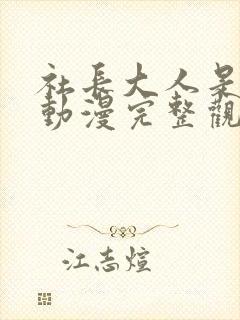 社長大人是
動漫完整觀
江志煊